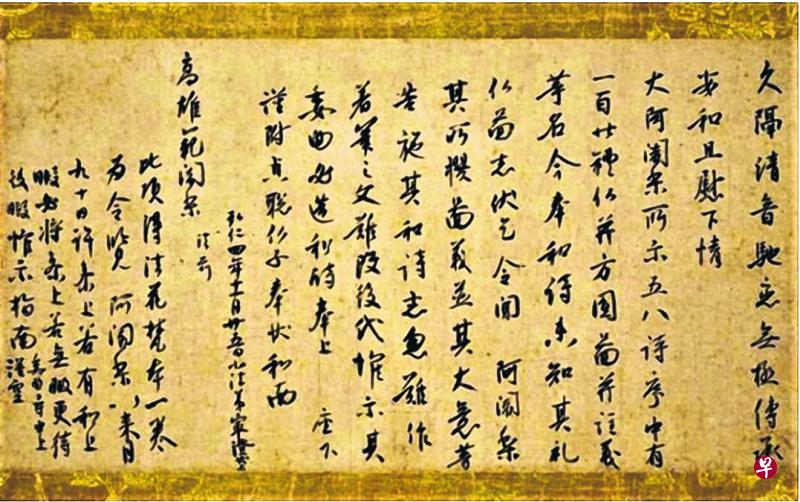 久隔清音馳恋無極傳承
安和且慰下情
大阿闍梨所示五八詩序中有
一百廿禮仏并方圓圖并註義
等名今奉和詩未知其礼
仏圖者伏乞令聞 阿闍梨
其所撰圖義並其大意等
告施其和詩者忽難作
著筆之文難改後代惟示其
委曲必造和詩奉上 座下
謹附貞聡仏子奉状和南
弘仁四年十一月廿五日小法弟最澄
高雄範闍梨
法前
此頃得法花梵本一巻
為令覧 阿闍梨 来月
九十日許参上若有和上
暇必将参上若無暇更待
後暇惟示指南 謹空
早